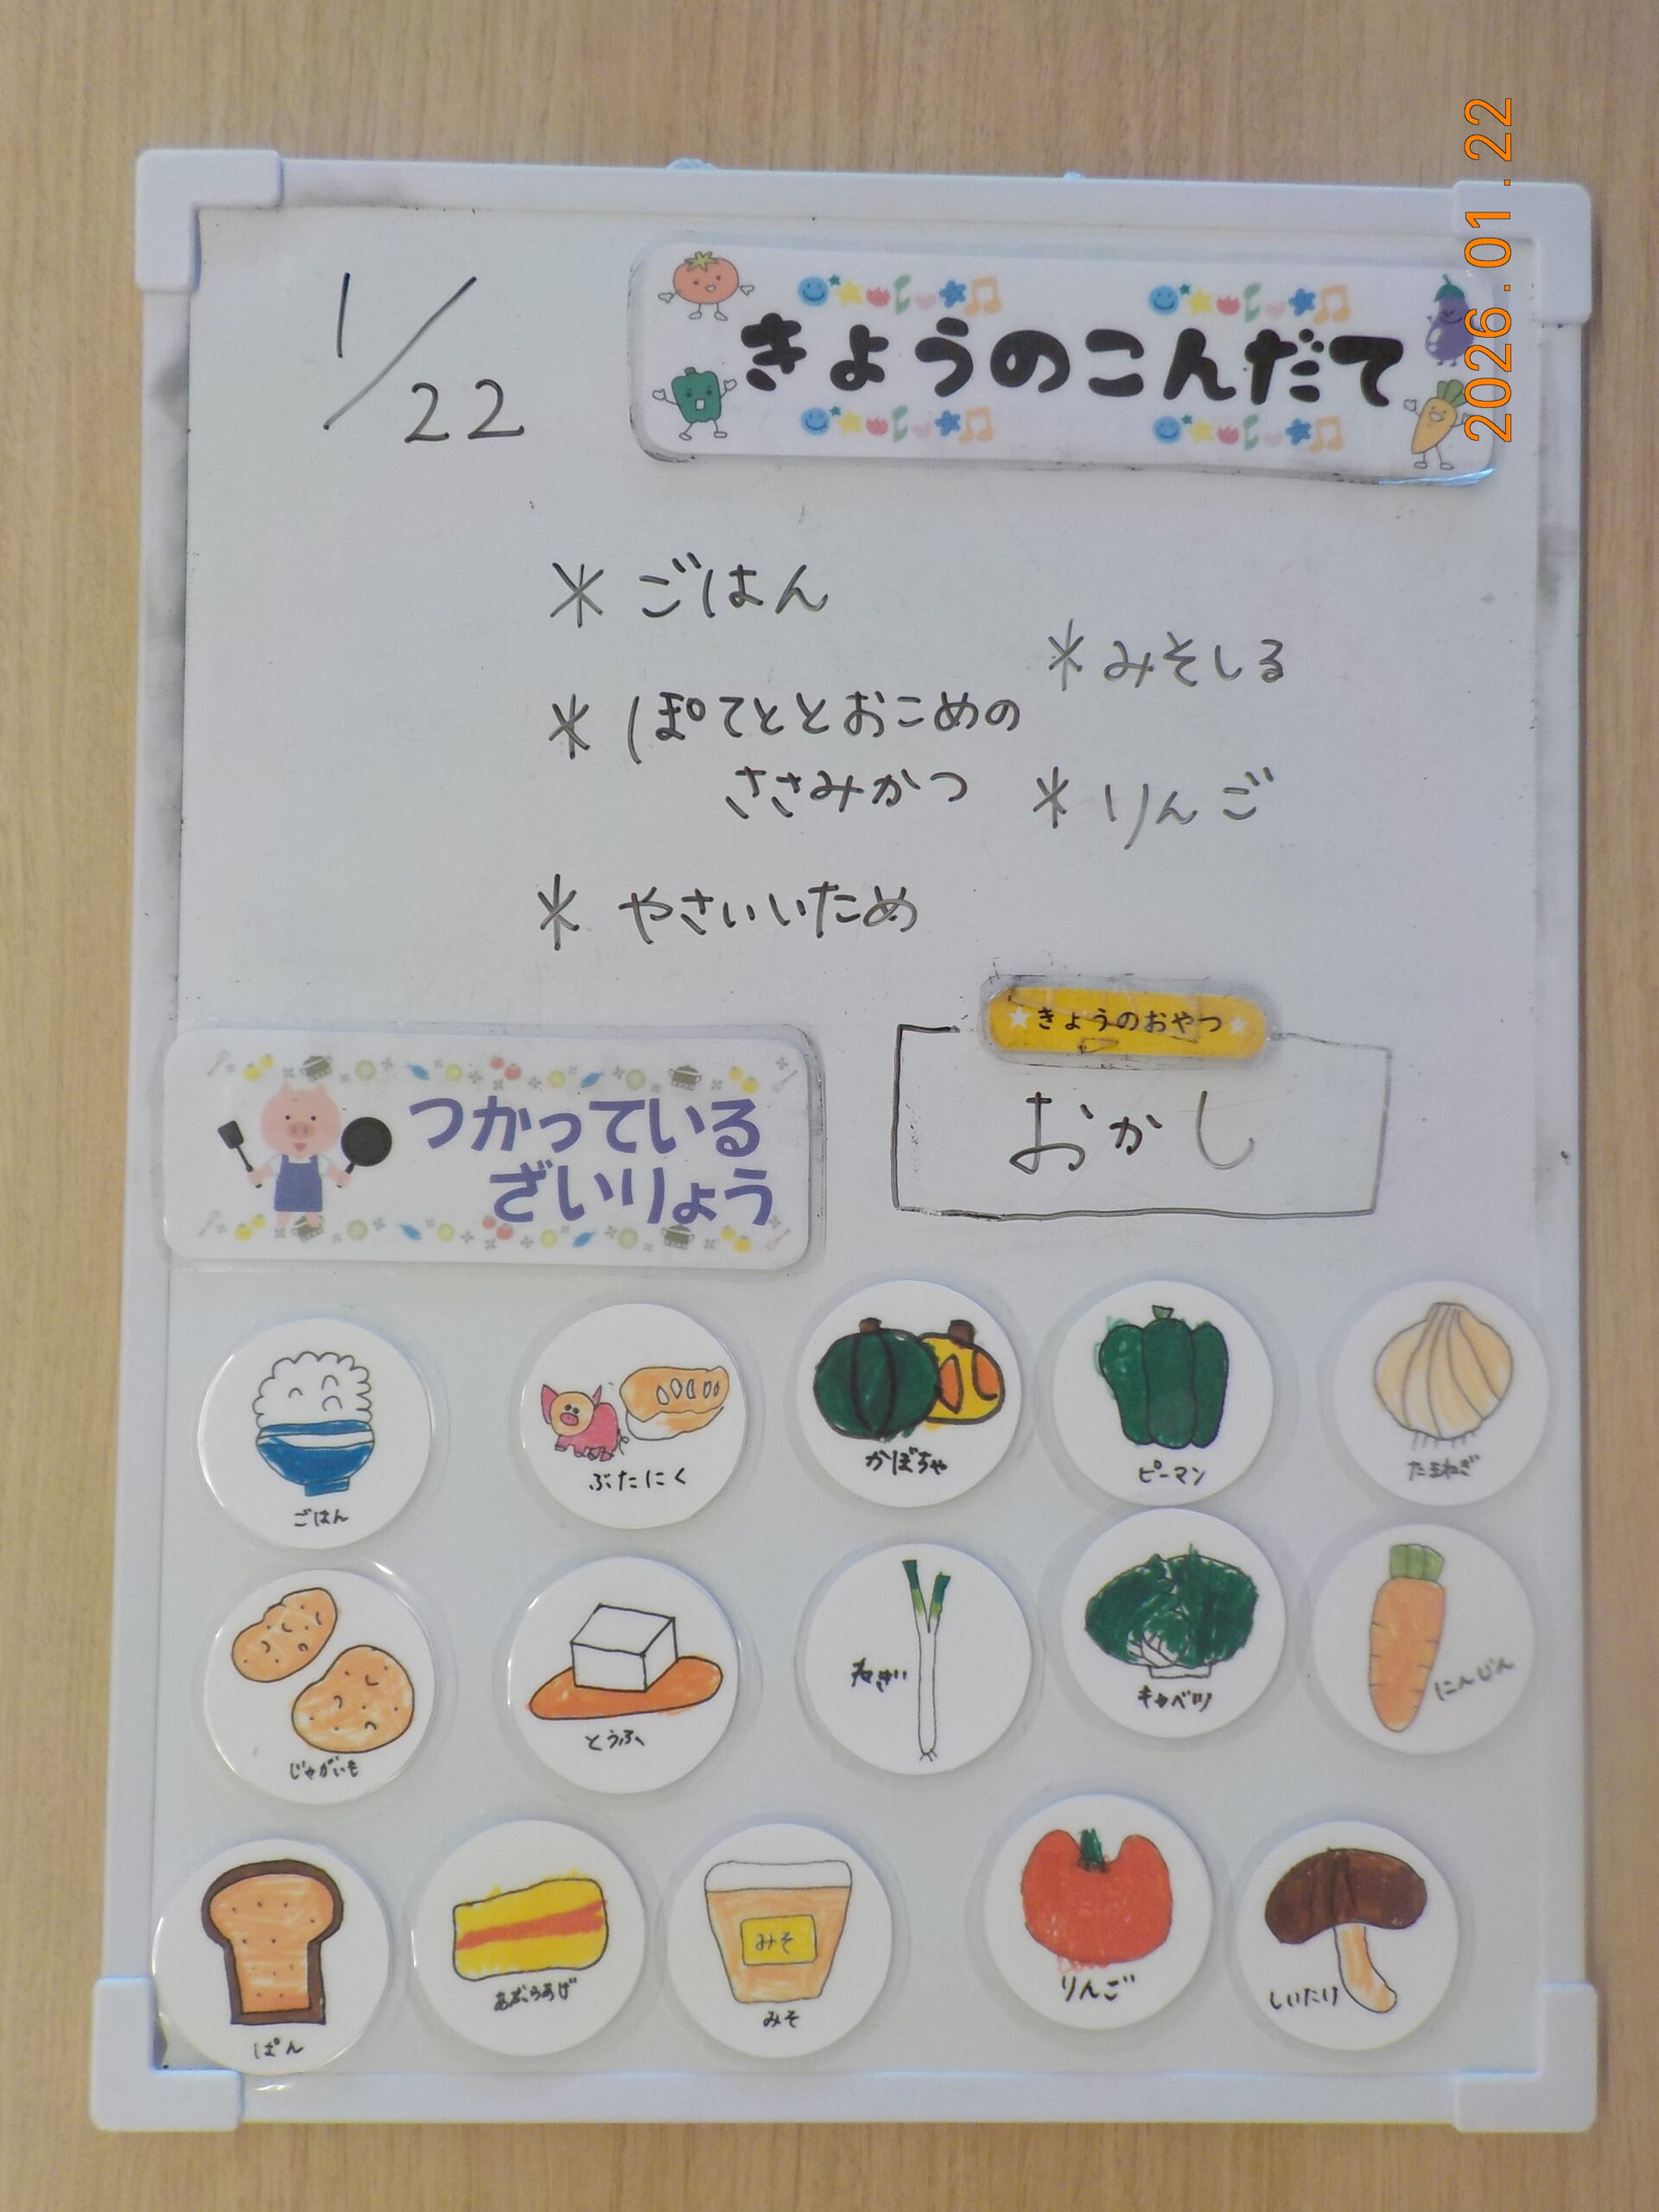 2026.01.22
1/22
きょうのこんだて
* ごはん
* ぽてととおこめの
ささみかつ
* やさいいため
* みそしる
* りんご
きょうのおやつ
おかし
つかっている
ざいりょう
ごはん
ぶたにく
かぼちゃ
ピーマン
たまねぎ
じゃがいも
とうふ
ねぎ
キャベツ
にんじん
ぱん
あぶらあげ
みそ
みそ
りんご
しいたけ